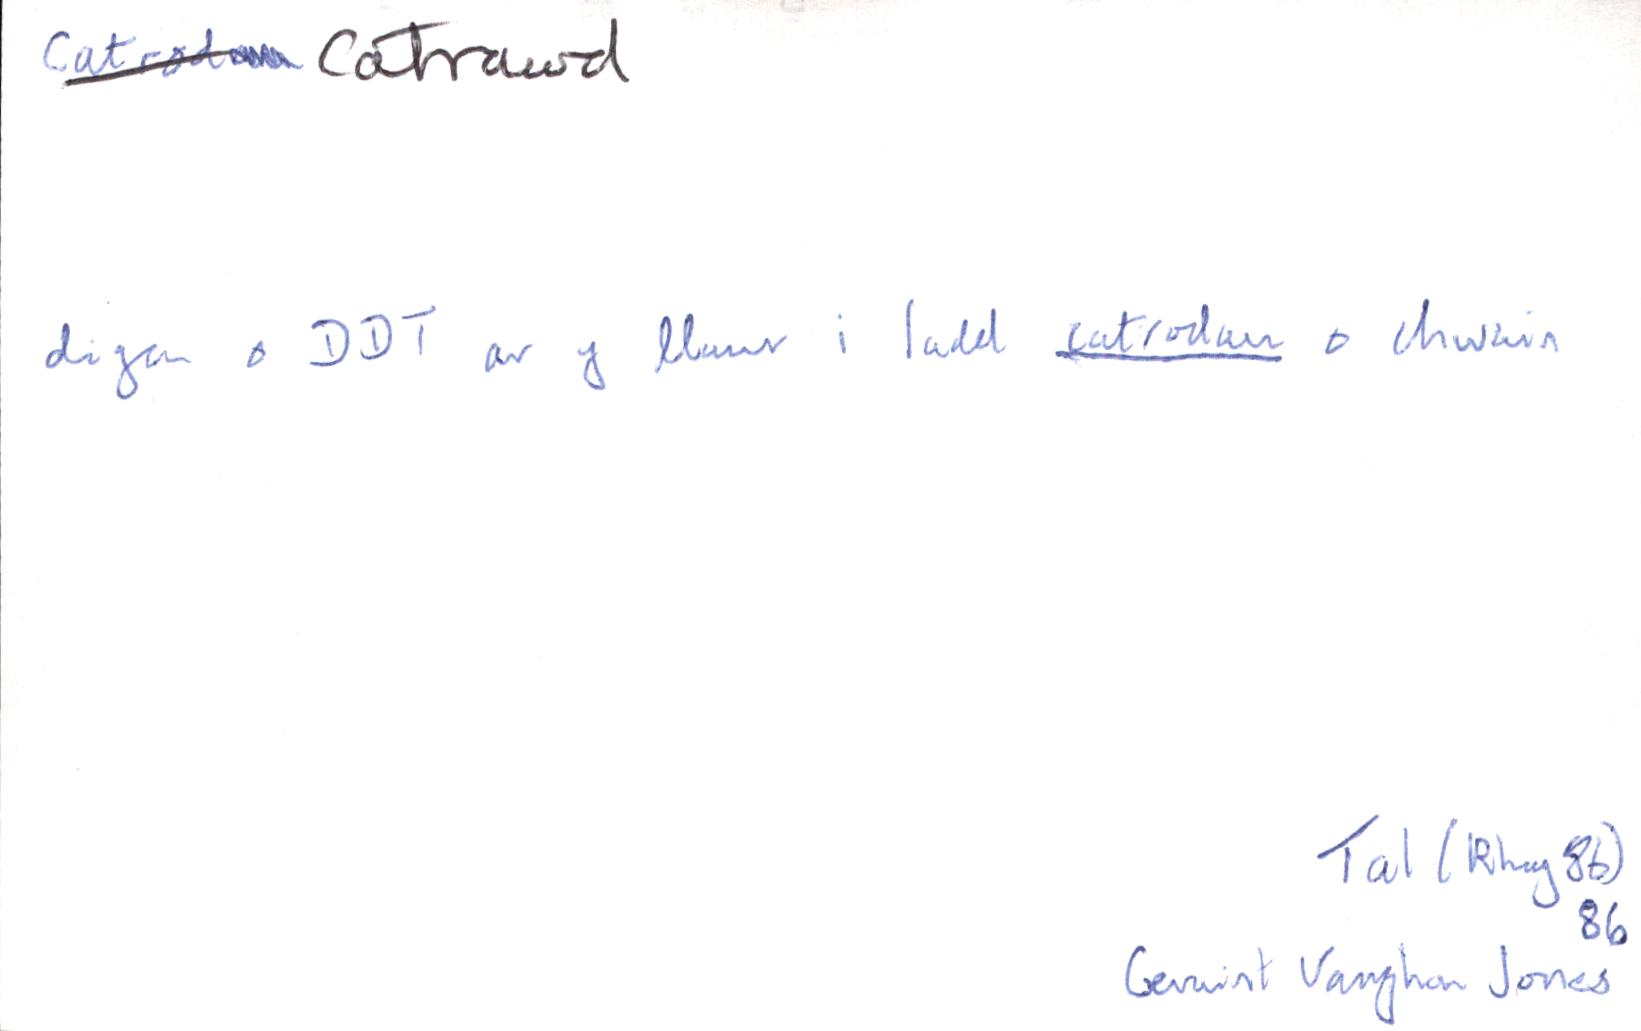 Catrodau Catrawd
digon o DDT ar y llawr i ladd catrodau o chwain
Tal (Rhag 86)
86
Geraint Vaughan Jones